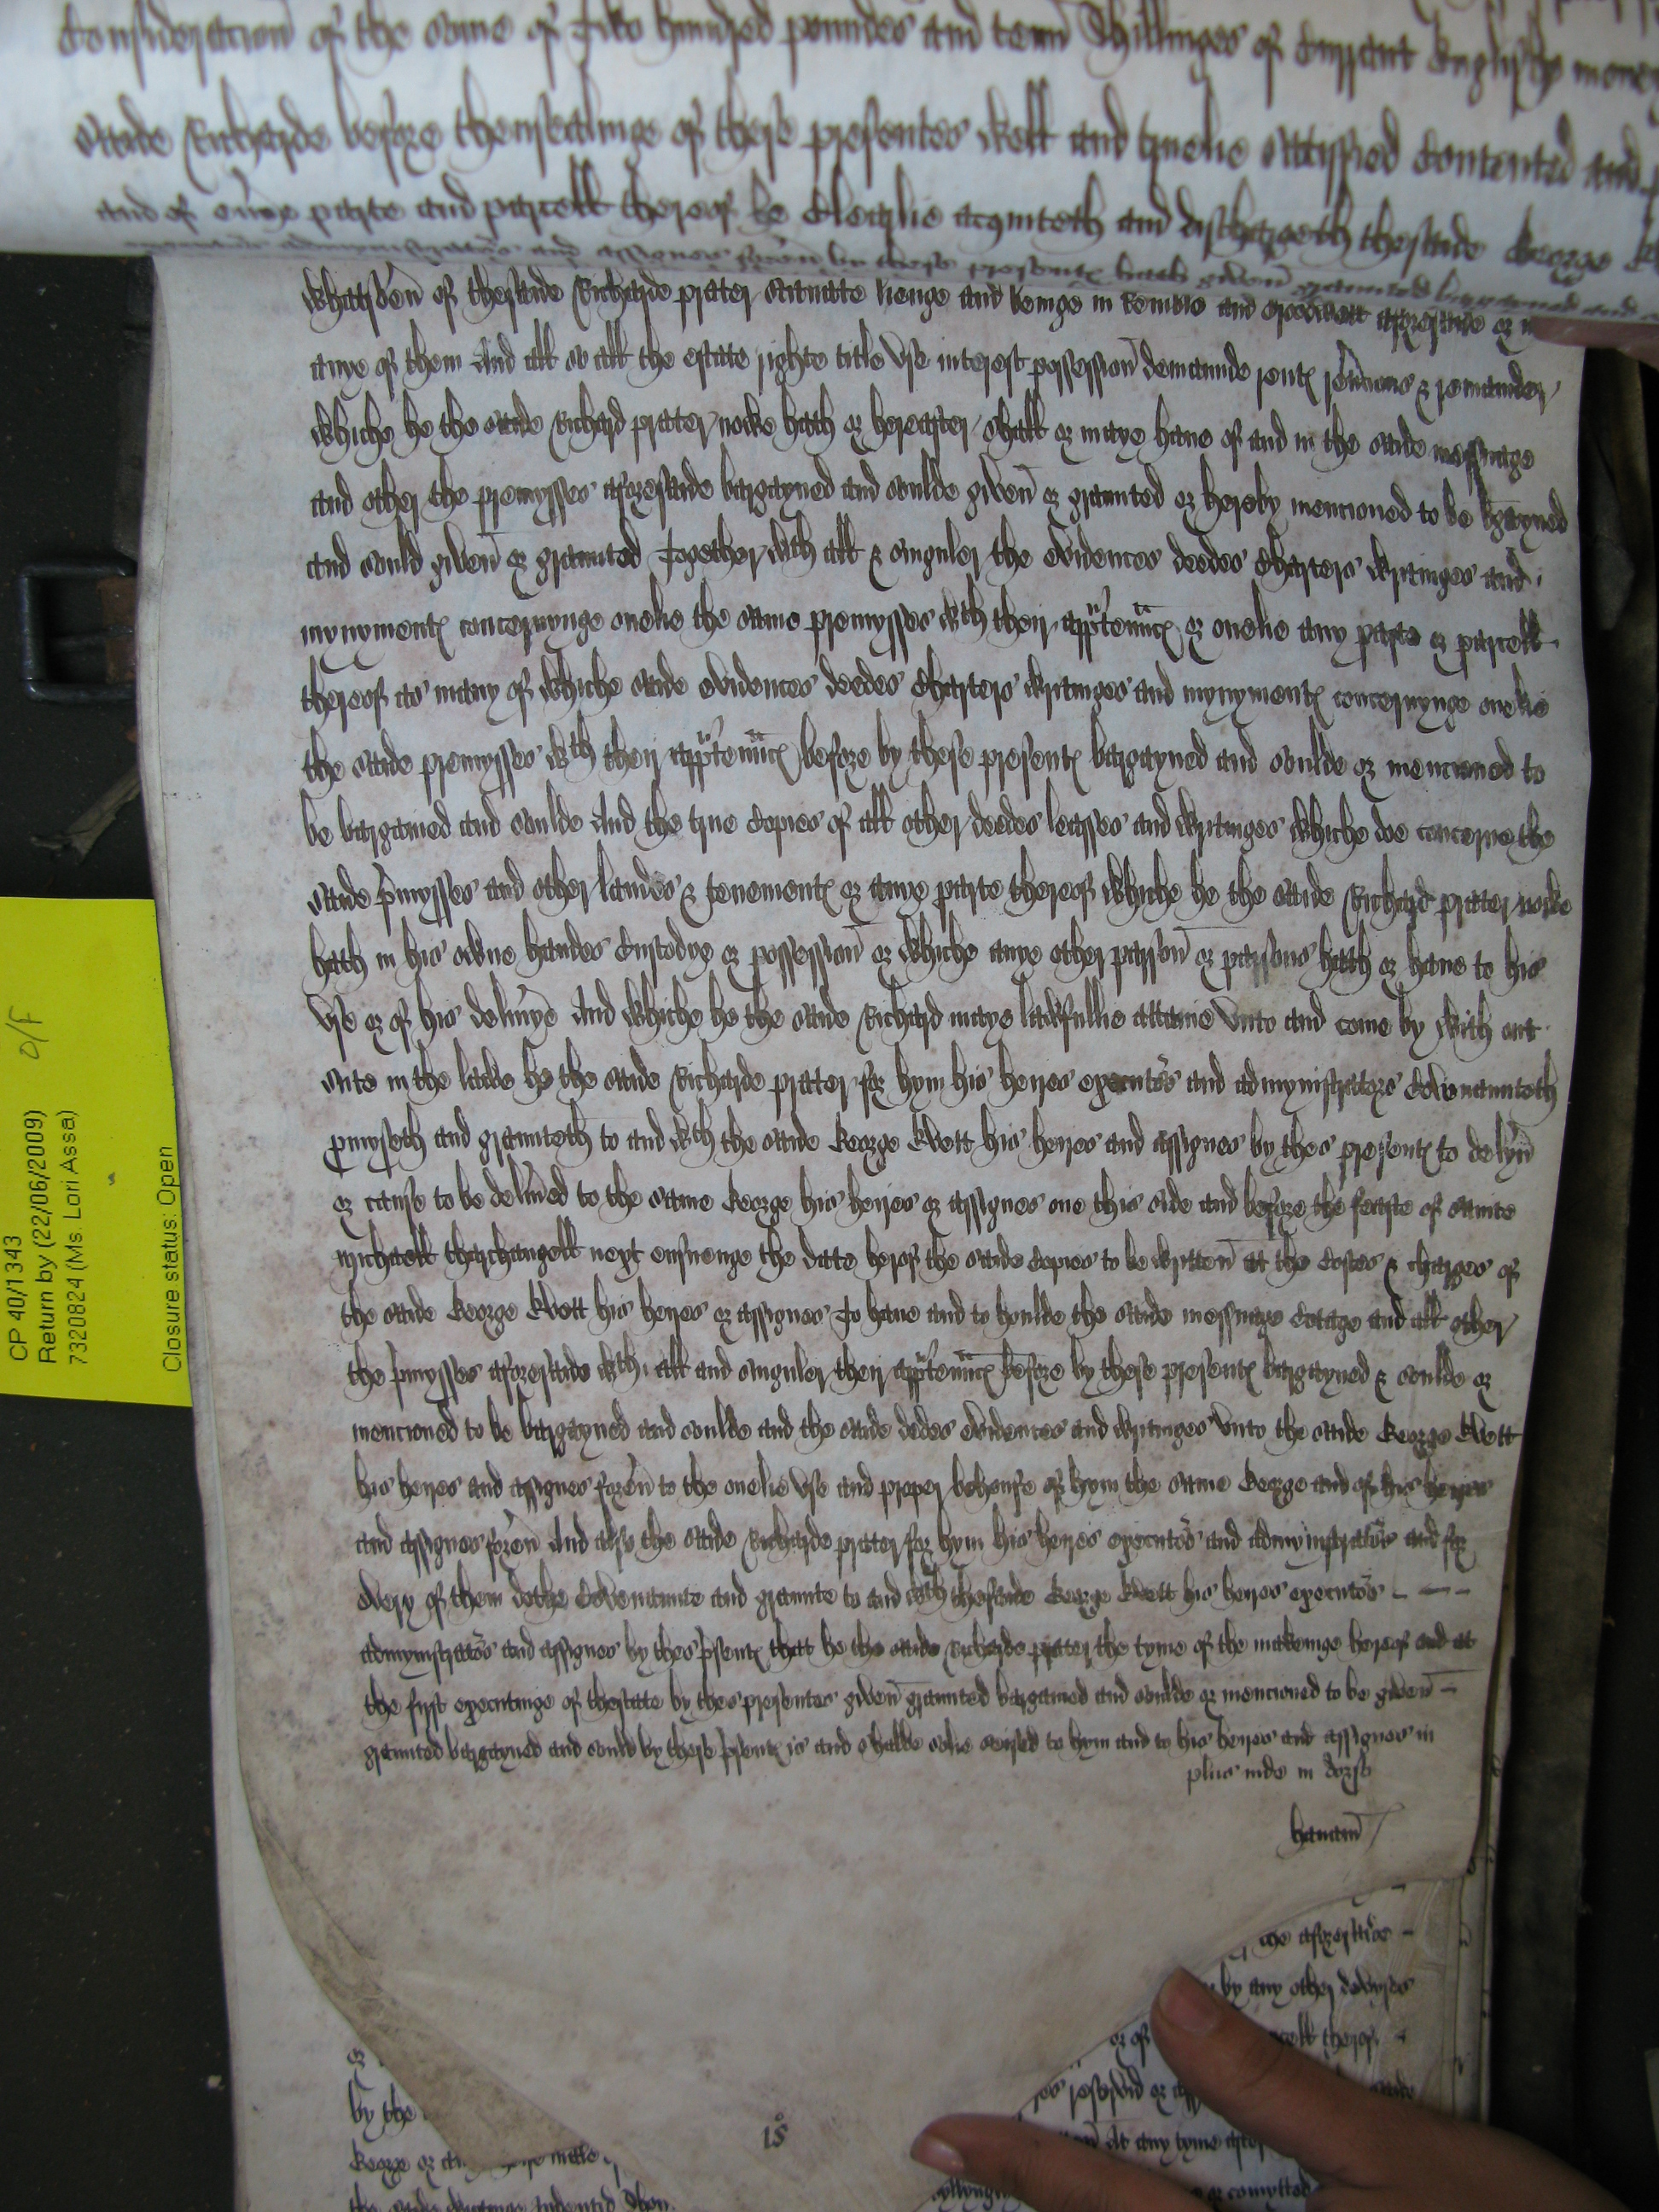 Consideracion of the some of two hundred poundes and tenn shillinges of currant Englishe mone
saide Richarde before thensealinge of these presentes well and truelie satisfied contented and p
and of eu'ye parte and parcell thereof he clearlie acquiteth and dischargeth thesaide George
and assignes foreu' by these presentes hath given graunted bargayned and
whatsoeu' of thesaide Richarde prater scituate lienge and beinge in Kemble and aforesaide or in
anye of them And all so all the estate righte title vse interest possession demaunde rent reu'cions & remainder
whiche he the saide Richard prater nowe hath or hereafter shall or maye haue of and in the saide messuage
and other the premysses aforesaide bargayned and soulde given or graunted or hereby mencioned to be bgayned
and sould given or graunted Together with all & singuler the evidences deedes charters writinges and
mynyment concernynge onelie the same premysses wth their appten'nc or onelie any parte or parcell
thereof as many of whiche saide evidences deedes charters writinges and mynyment concernynge onelie
the saide premysses wth their appten'nc before by these present bargayned and soulde or mencioned to
be bargained and soulde And the true copies of all other deedes leasses and writinges whiche doe concerne the
saide p'mysses and other landes & tenement or anye parte thereof whiche he the saide Richard prater nowe
hath in his owne handes custodye or possession or whiche anye other parson or parsons hath or haue to his
vse or of his deliu'ye And whiche he the saide Richard maye lawfullie attaine vnto and come by with out
sute in the lawe he the saide Richarde prater for hym his heires executo's and admynistrators Covenaunteth
p'myseth and graunteth to and wth the saide George Evett his heires and assignes by thes present to delyu'
or cause to be deliu'ed to the same George his heires or assignes one this side and before the feaste of sainte
Michaell tharchangell next ensuenge the date herof the saide copies to be written at the costes & charges of
the saide George Evett his heires or assignes To haue and to houlde the saide messuage cotage and all other
the p'mysses aforesaide wth all and singuler their appten'nc before by these present bargayned & soulde or
mencioned to be bargayned and soulde and the saide dedes evidences and writinges vnto the saide George Evett
his heires and assignes foreu' to the onelie vse and proper behoufe of hym the same George and of his heires
and assignes foreu' And also the saide Richarde prater for hym his heires executo's and admynistrato's and for
every of them dothe Covenaunte and graunte to and wth thesaide George Evett his heires executo's
admynistrato's and assignes by thes p'sent that he the saide Richarde prater the tyme of the makeinge hereof and at
the first executinge of thestate by thes presentes given graunted bargained and soulde or mencioned to be given
graunted bargayned and sould by these p'sent is and shalbe solie seised to hym and to his heires and assignes in
plus inde in dorso
18
aforesaide
by any other
or of parcell therof
by the
George or
at any tyme
or comytted
CP 40/1343 O/F
Return by (22/06/2009)
7320824 (Ms. Lori Assa)
Closure status: Open